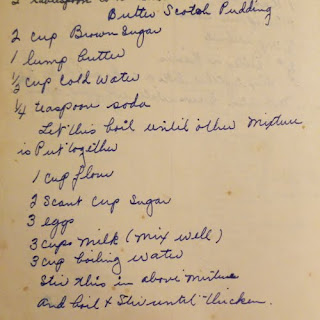 Butter Scotch Pudding
2 cup Brown Sugar
1 lump butter
1/2 cup Cold Water
1/4 teaspoon soda
Let this boil until other mixture
is Put together
1 cup flour
2 Scant Cup Sugar
3 eggs
3 cups Milk (Mix well)
3 cup boiling water
Stir this in above mixture
And boil & Stir until thicken.